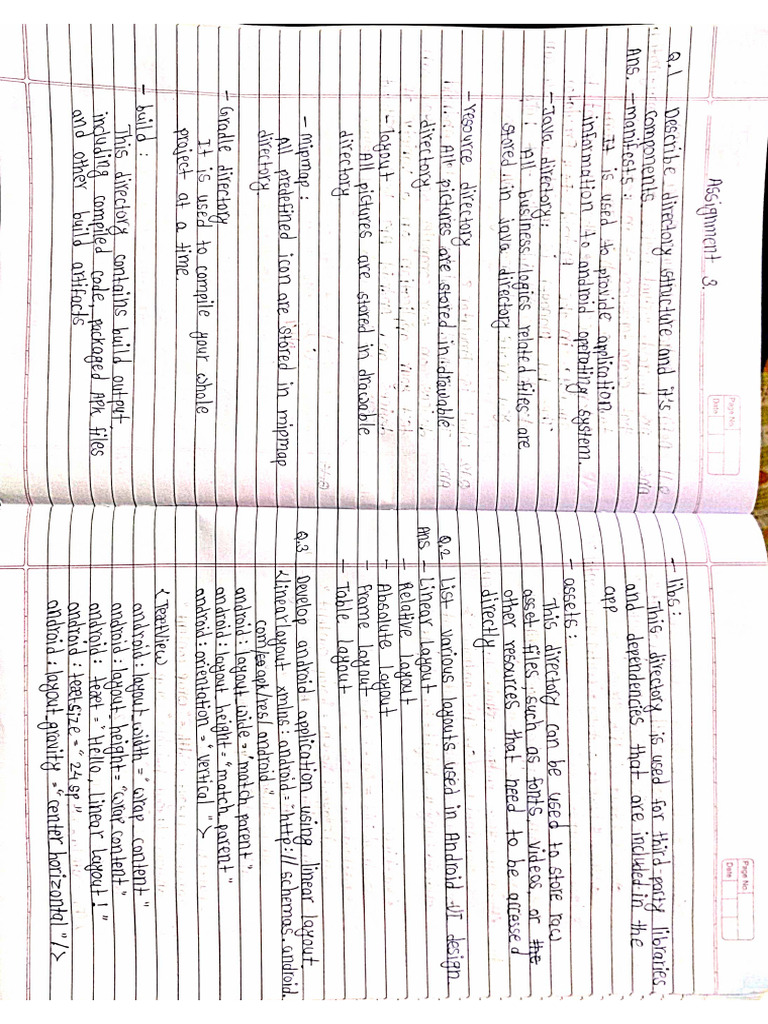 Assignment 3.
Page No.
Date
Q.1 Describe directory structure and it's
components
Ans. - manifests :
It is used to provide application
information to android operating system.
- Java directory :
All business logics related files are
stored in java directory
- resource directory
All pictures are stored in drawable
directory
- layout
All pictures are stored in drawable
directory
- mipmap :
All predefined icon are stored in mipmap
directory.
- Gradle directory
It is used to compile your whole
project at a time
- build :
This directory contains build output,
including compiled code, packaged APK files
and other build artifacts
Page No
Date
- libs :
This directory is used for third-party libraries
and dependencies that are included in the
app
- assets :
This directory can be used to store raw
asset files, such as fonts, videos, or the
other resources that need to be accessed
directly.
Q.2 List various layouts used in Android UI design.
Ans - Linear layout
- Relative layout
- Absolute layout
- Frame layout
- Table layout
Q.3 Develop android application using linear layout.
<linearlayout xmlns : android = "http:// schemas. android.
com/apk/res/ android "
android : layout wide = "match parent"
android : layout height = "match parent"
android : orientation = "vertical ">
<TextView
android : layout_width = "wrap content"
android : layout_height = "wrap content"
android : text = "Hello, linear layout ! "
android : textsize = "24sp"
android : layout_gravity = "center horizontal "/>